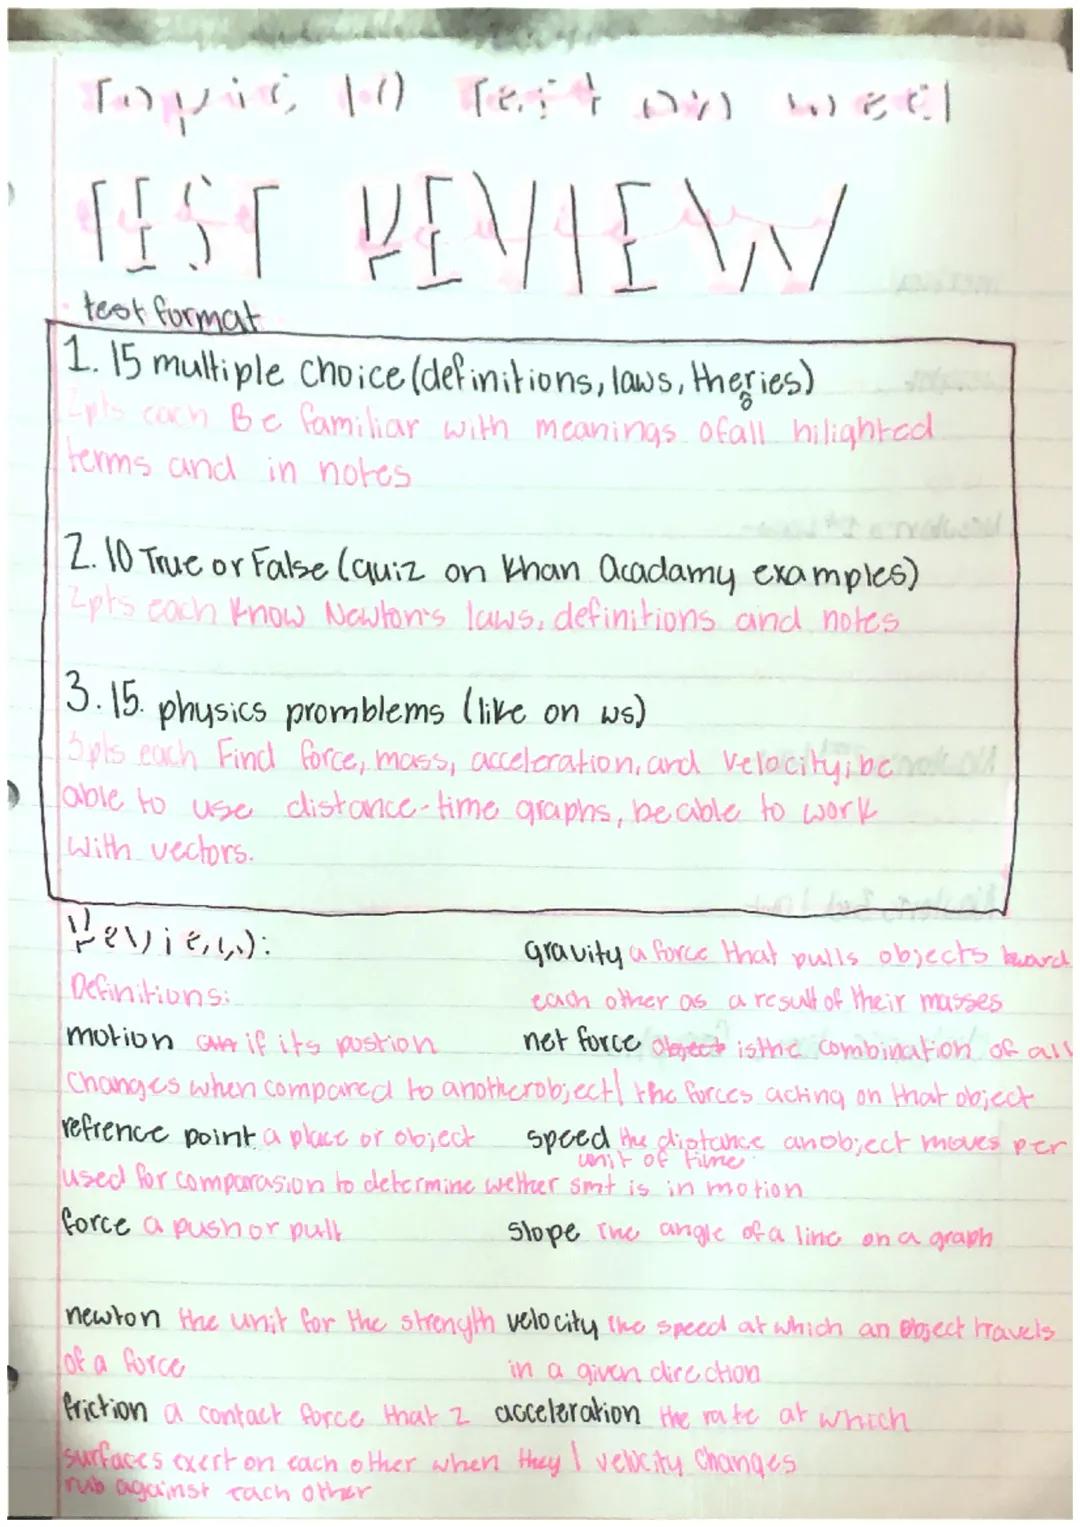 Topic 10 Test on wed
TEST REVIEW
test format
1. 15 multiple choice (definitions, laws, theries)
o
2pts each Be familiar with meanings of all hilighted
terms and in notes
2. 10 True or False (quiz on Khan Acadamy examples)
2pts each Know Newton's laws, definitions and notes
3. 15. physics promblems (like on ws)
3pts each Find force, mass, acceleration, and velocity; be
able to use distance-time graphs, be able to work
with vectors.
Review:
Definitions:
motion if its postion
changes when compared to another object
refrence point a place or object
used for comparasion to determine wether smt is in motion
force a push or pull
newton the unit for the strength
of a force
friction a contact force that 2
surfaces exert on each other when they
rub against each other
gravity a force that pulls objects toward
each other as a result of their masses
net force object is the combination of all
the forces acting on that object
speed the distance an object moves per
unit of time
slope the angle of a line on a graph
velocity the speed at which an object travels
in a given direction
acceleration the rate at which
velocity changes